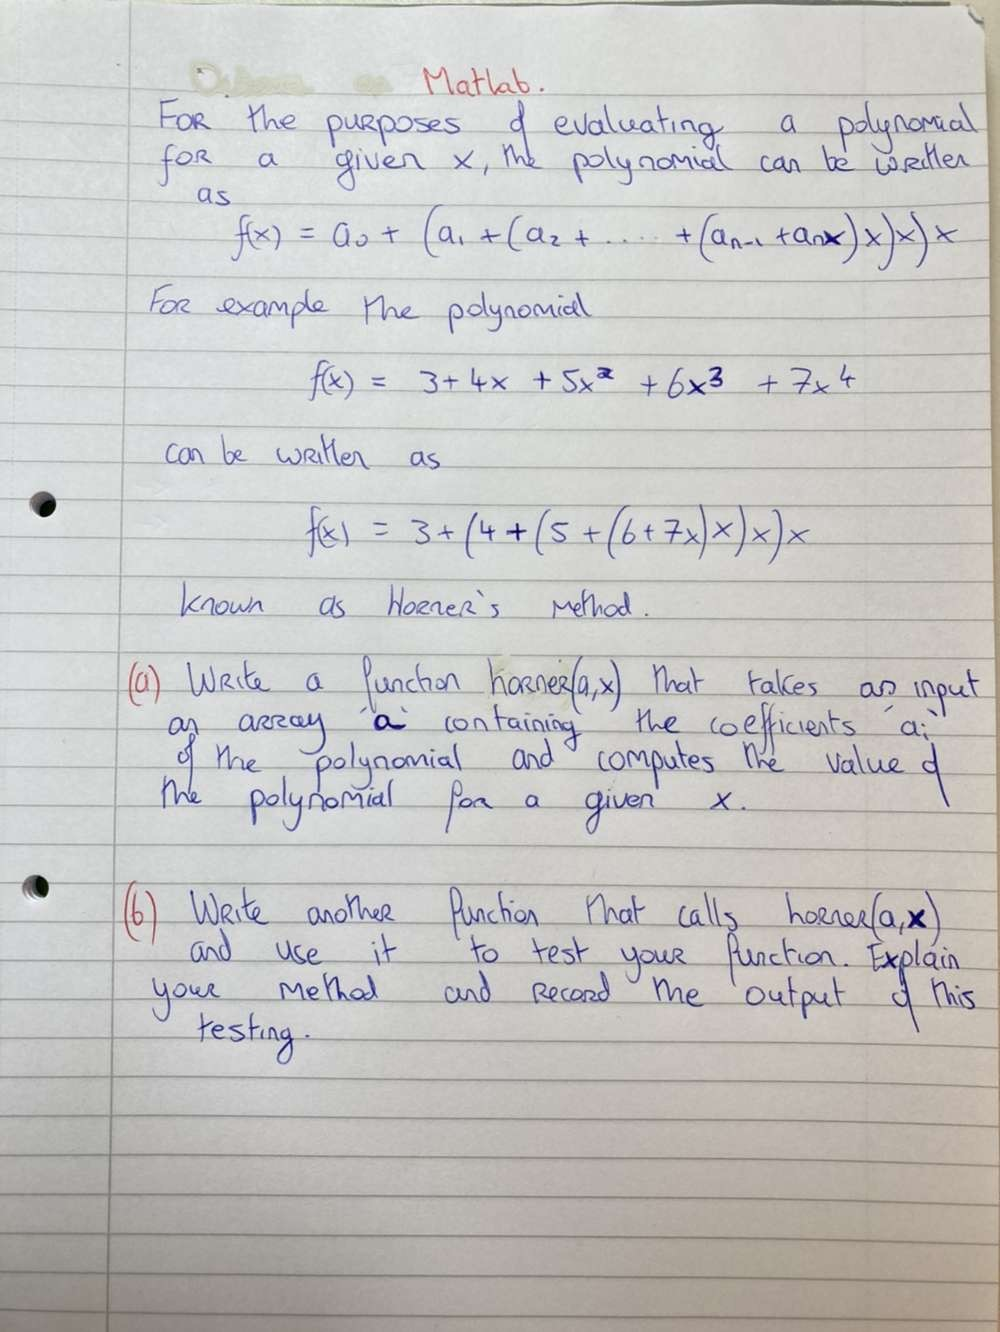 Matlab.
For the purposes of evaluating a polynomial
for a given x, the polynomial can be written
as
f(x) = a₀ + (a₁ + (a₂ + ..... + (aₙ₋₁ + aₙx)x)x)x
For example the polynomial
f(x) = 3 + 4x + 5x² + 6x³ + 7x⁴
can be written as
f(x) = 3 + (4 + (5 + (6 + 7x)x)x)x
known as Horner's method.
(a) Write a function horner(a,x) that takes as input
an array 'a' containing the coefficients 'aᵢ'
of the polynomial and computes the value of
the polynomial for a given x.
(b) Write another function that calls horner(a,x)
and use it to test your function. Explain
your method and record the output of this
testing.